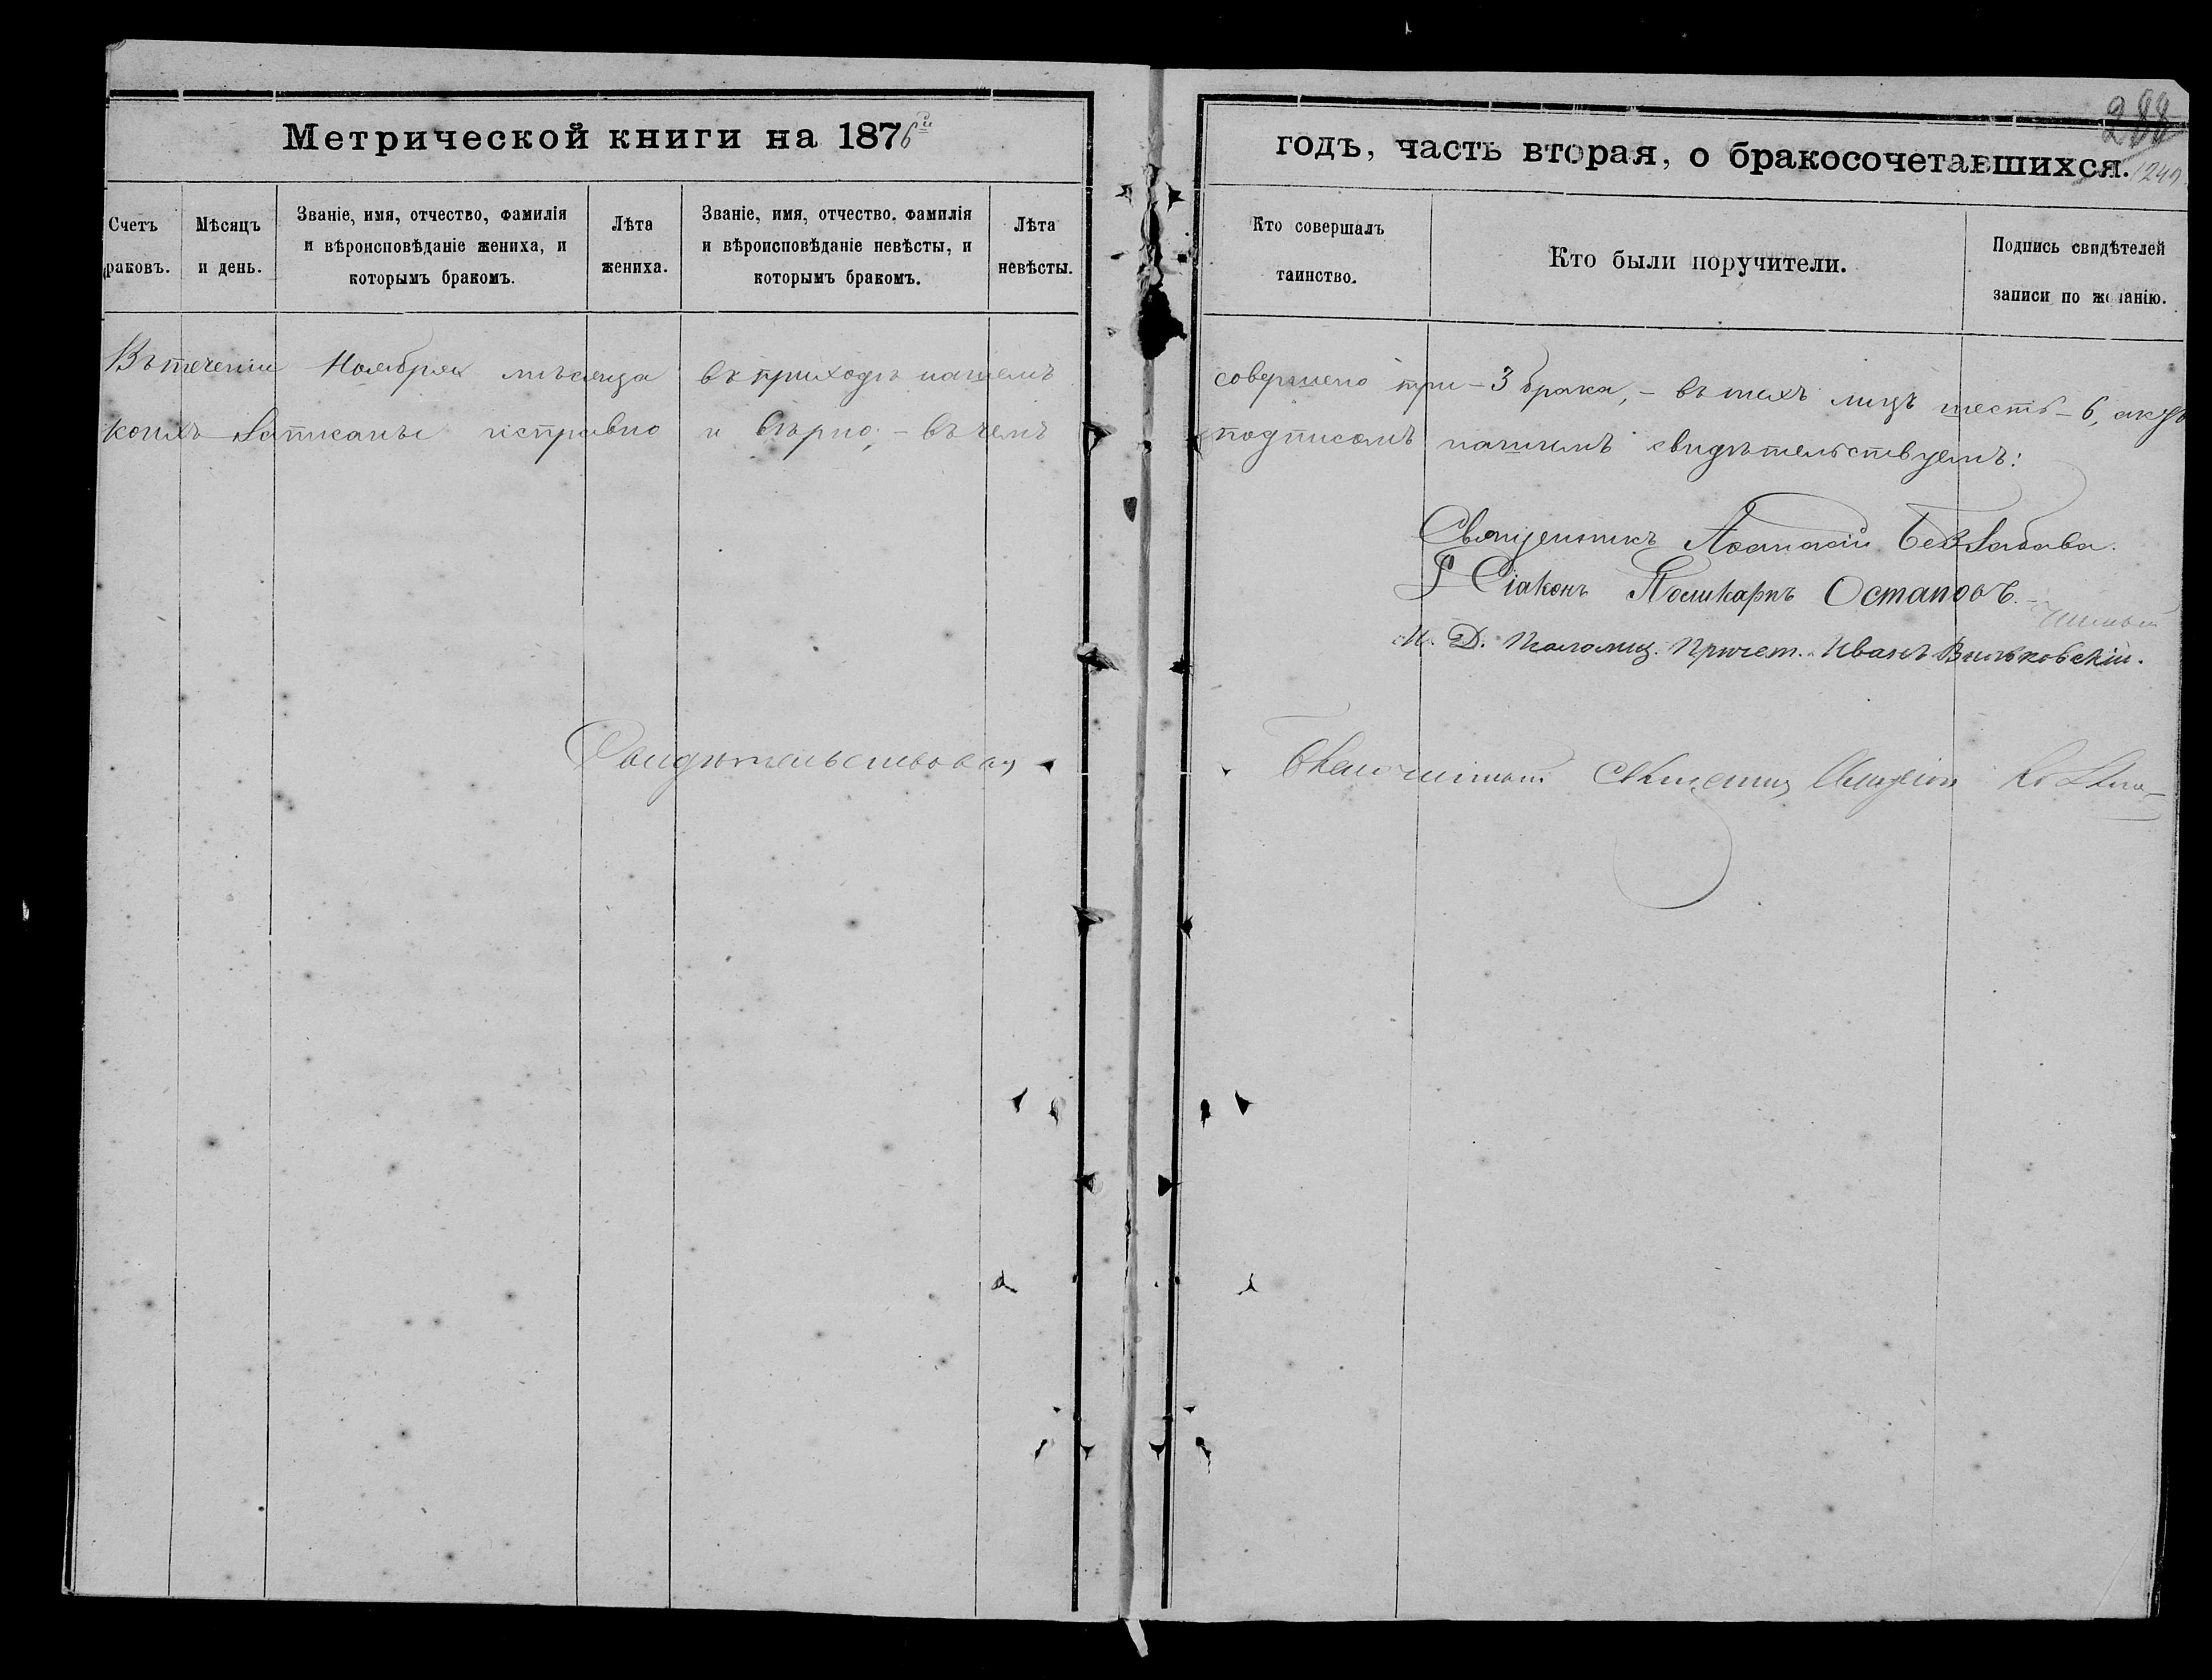 288
Метрической книги на 1876й годъ, часть вторая, о бракосочетавшихся.
1249
Счетъ раковъ.
Мѣсяцъ и день.
Званіе, имя, отчество, фамилія и вѣроисповѣданіе жениха, и которымъ бракомъ.
Лѣта жениха.
Званіе, имя, отчество, фамилія и вѣроисповѣданіе невѣсты, и которымъ бракомъ.
Лѣта невѣсты.
Кто совершалъ таинство.
Кто были поручители.
Подпись свидѣтелей записи по желанію.
Въ теченіи Ноября мѣсяца въ приходѣ нашемъ совершено три - 3 брака, - въ техъ лицъ шесть - 6,
коихъ записаны исправно и вѣрно; - въ чемъ подписомъ нашимъ свидѣтельствуемъ:
Священникъ Аѳанасій Беззабава.
Діаконъ Поликарпъ Остаповъ.
И. Д. Псаломщ. Причет. Иванъ Вильковскій.
Свидѣтельствовал Благочинный Священник